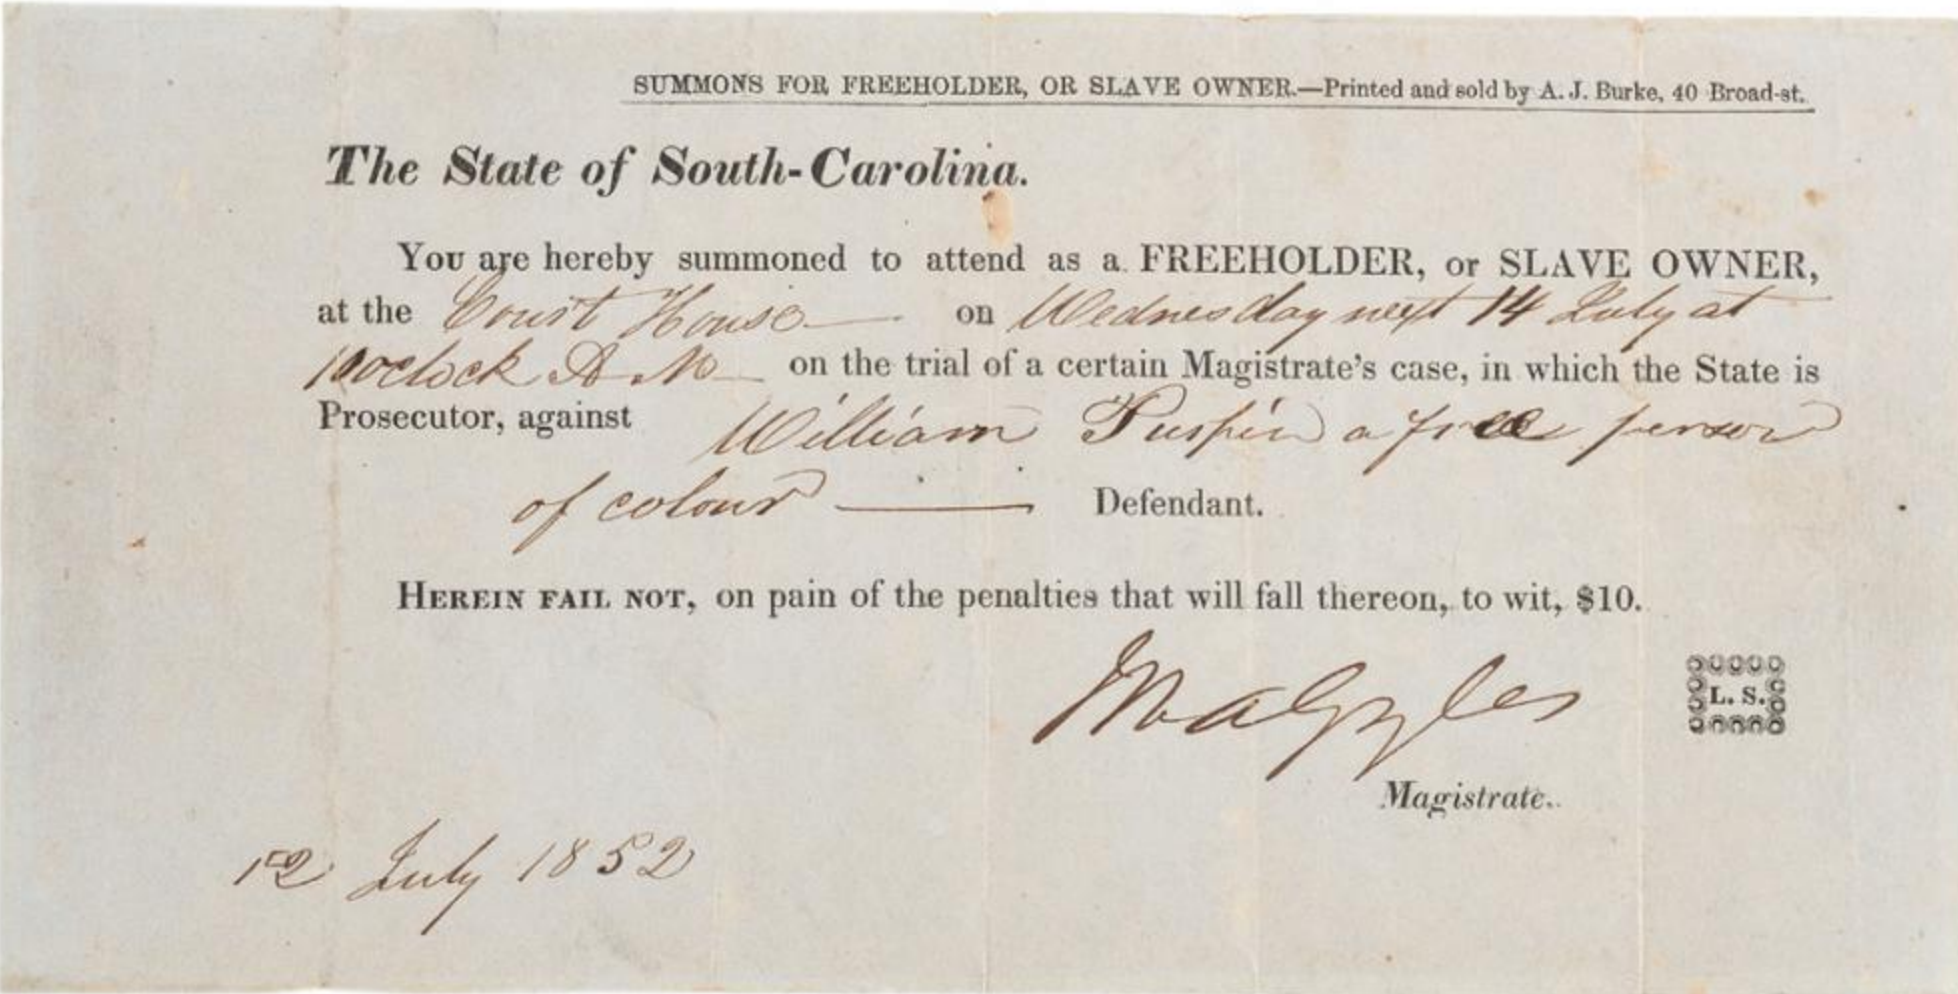 SUMMONS FOR FREEHOLDER, OR SLAVE OWNER.—Printed and sold by A. J. Burke, 40 Broad-st.
The State of South-Carolina.
You are hereby summoned to attend as a FREEHOLDER, or SLAVE OWNER,
at the Court House on Wednesday next 14 July at
10 oclock A M on the trial of a certain Magistrate's case, in which the State is
Prosecutor, against William a free person
of colour Defendant.
HEREIN FAIL NOT, on pain of the penalties that will fall thereon, to wit, $10.
L. S.
Magistrate.
12 July 1852